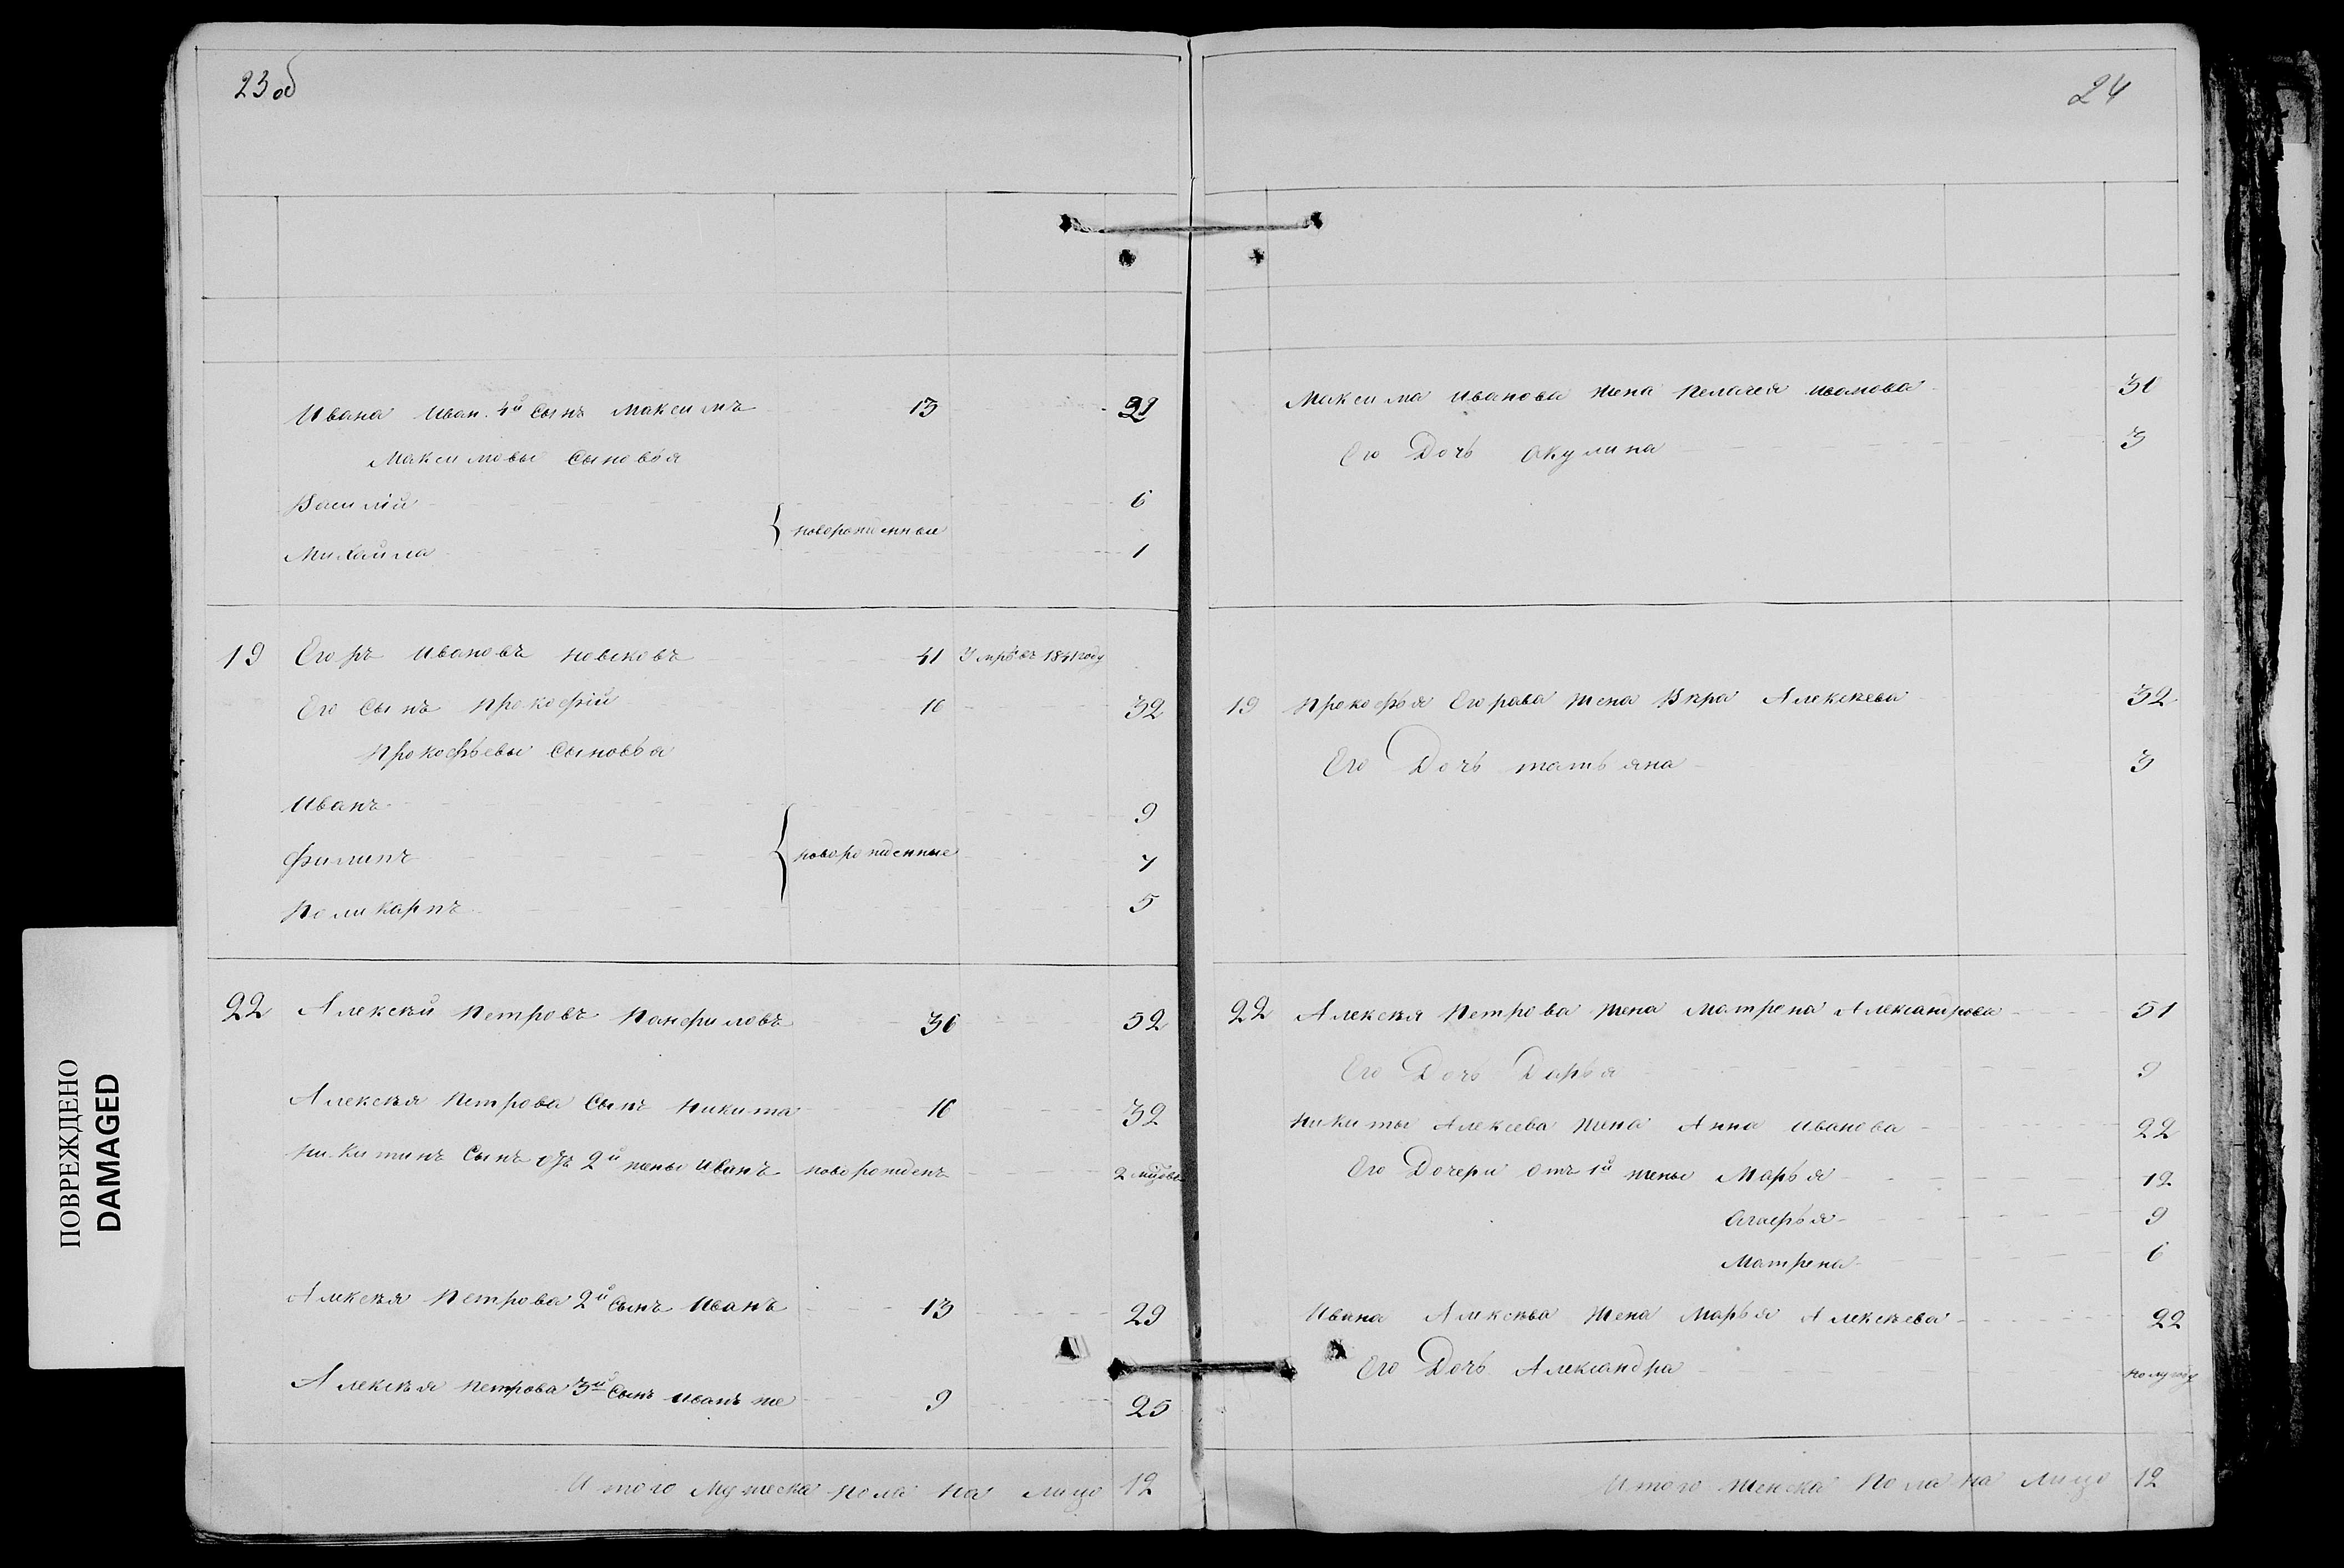 23 об
Ивана Иван. 4й Сынъ Максимъ 13 29
Максимовы Сыновья
Василій 6
новорожденные
Михайла 1
19 Егоръ Ивановъ 41 Умръ въ 1841 году
Его Сынъ Прокофій 16 32
Прокофьевы Сыновья
Иванъ 9
Филипъ новорожденные 7
Поликарпъ 5
22 Алексѣй Петровъ Панфиловъ 36 52
Алексѣя Петрова Сынъ Никита 16 32
Никитинъ Сынъ отъ 2й жены Иванъ новорожденъ 2 мцовъ
Алексѣя Петрова 2й Сынъ Иванъ 13 29
Алексѣя Петрова 3й Сынъ Иванъ же 9 25
Итого Мужеска пола на лицо 12
24
Максима Иванова Жена Пелагея Иванова 30
Его Дочь Акулина 3
19 Прокофья Егорова Жена Вѣра Алексѣева 32
Его Дочь Татьяна 3
22 Алексѣя Петрова Жена Матрена Александрова 51
Его Дочь Дарья 9
Никиты Алексеева Жена Анна Иванова 22
Его Дочери отъ 1й жены Марья 12
Агафья 9
Матрена 6
Ивана Алексѣва Жена Марья Алексѣева 22
Его Дочь Александра полугоду
Итого Женска Пола на Лицо 12
ПОВРЕЖДЕНО
DAMAGED